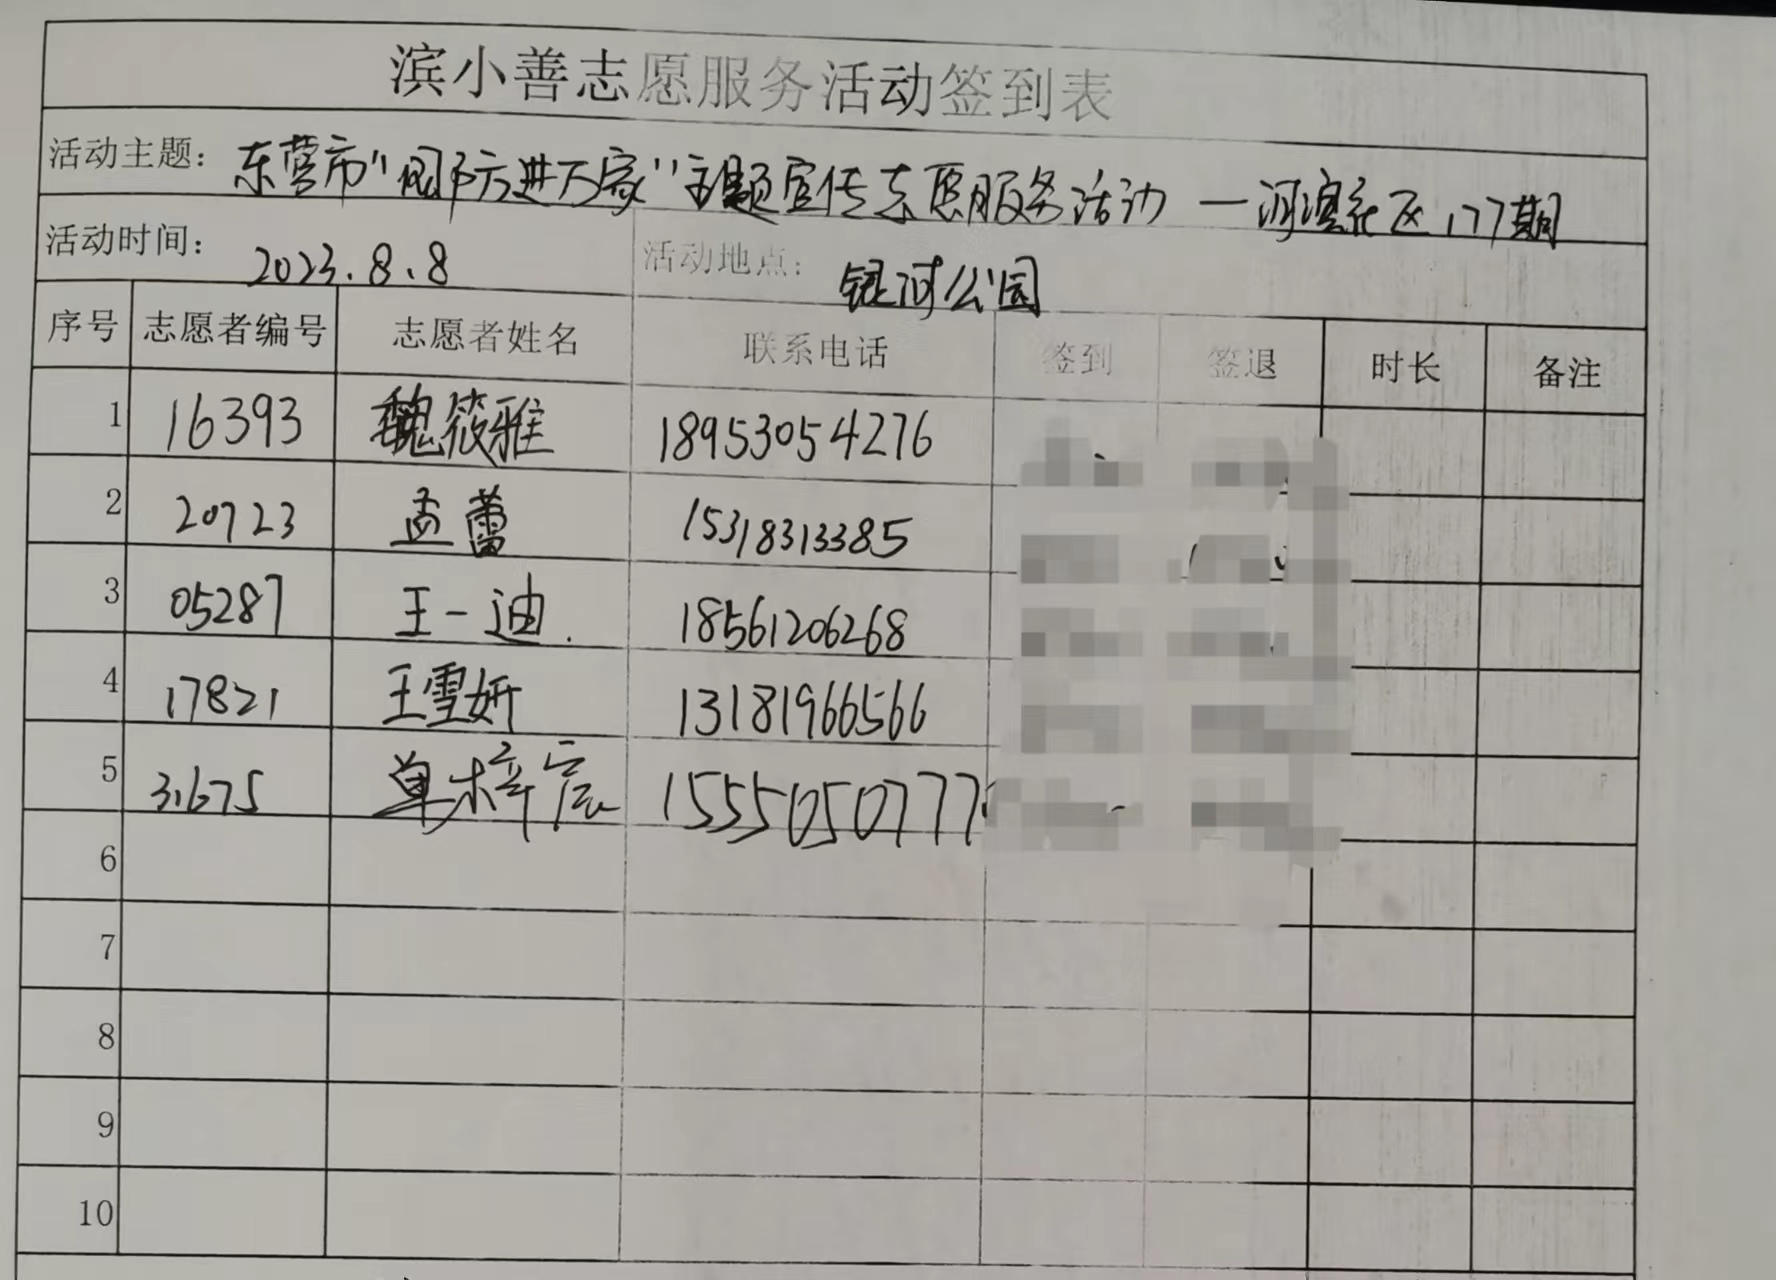 滨小善志愿服务活动签到表
活动主题: 东营市"国防进万家"主题宣传志愿服务活动 一河滨社区177期
活动时间: 2023.8.8 活动地点: 银河公园
序号 志愿者编号 志愿者姓名 联系电话 签到 签退 时长 备注
1 16393 魏筱雅 18953054276
2 20723 孟蕾 15318313385
3 05287 王一迪 18561206268
4 17821 王雪妍 13181966566
5 31675 单梓宸 1555050777
6
7
8
9
10